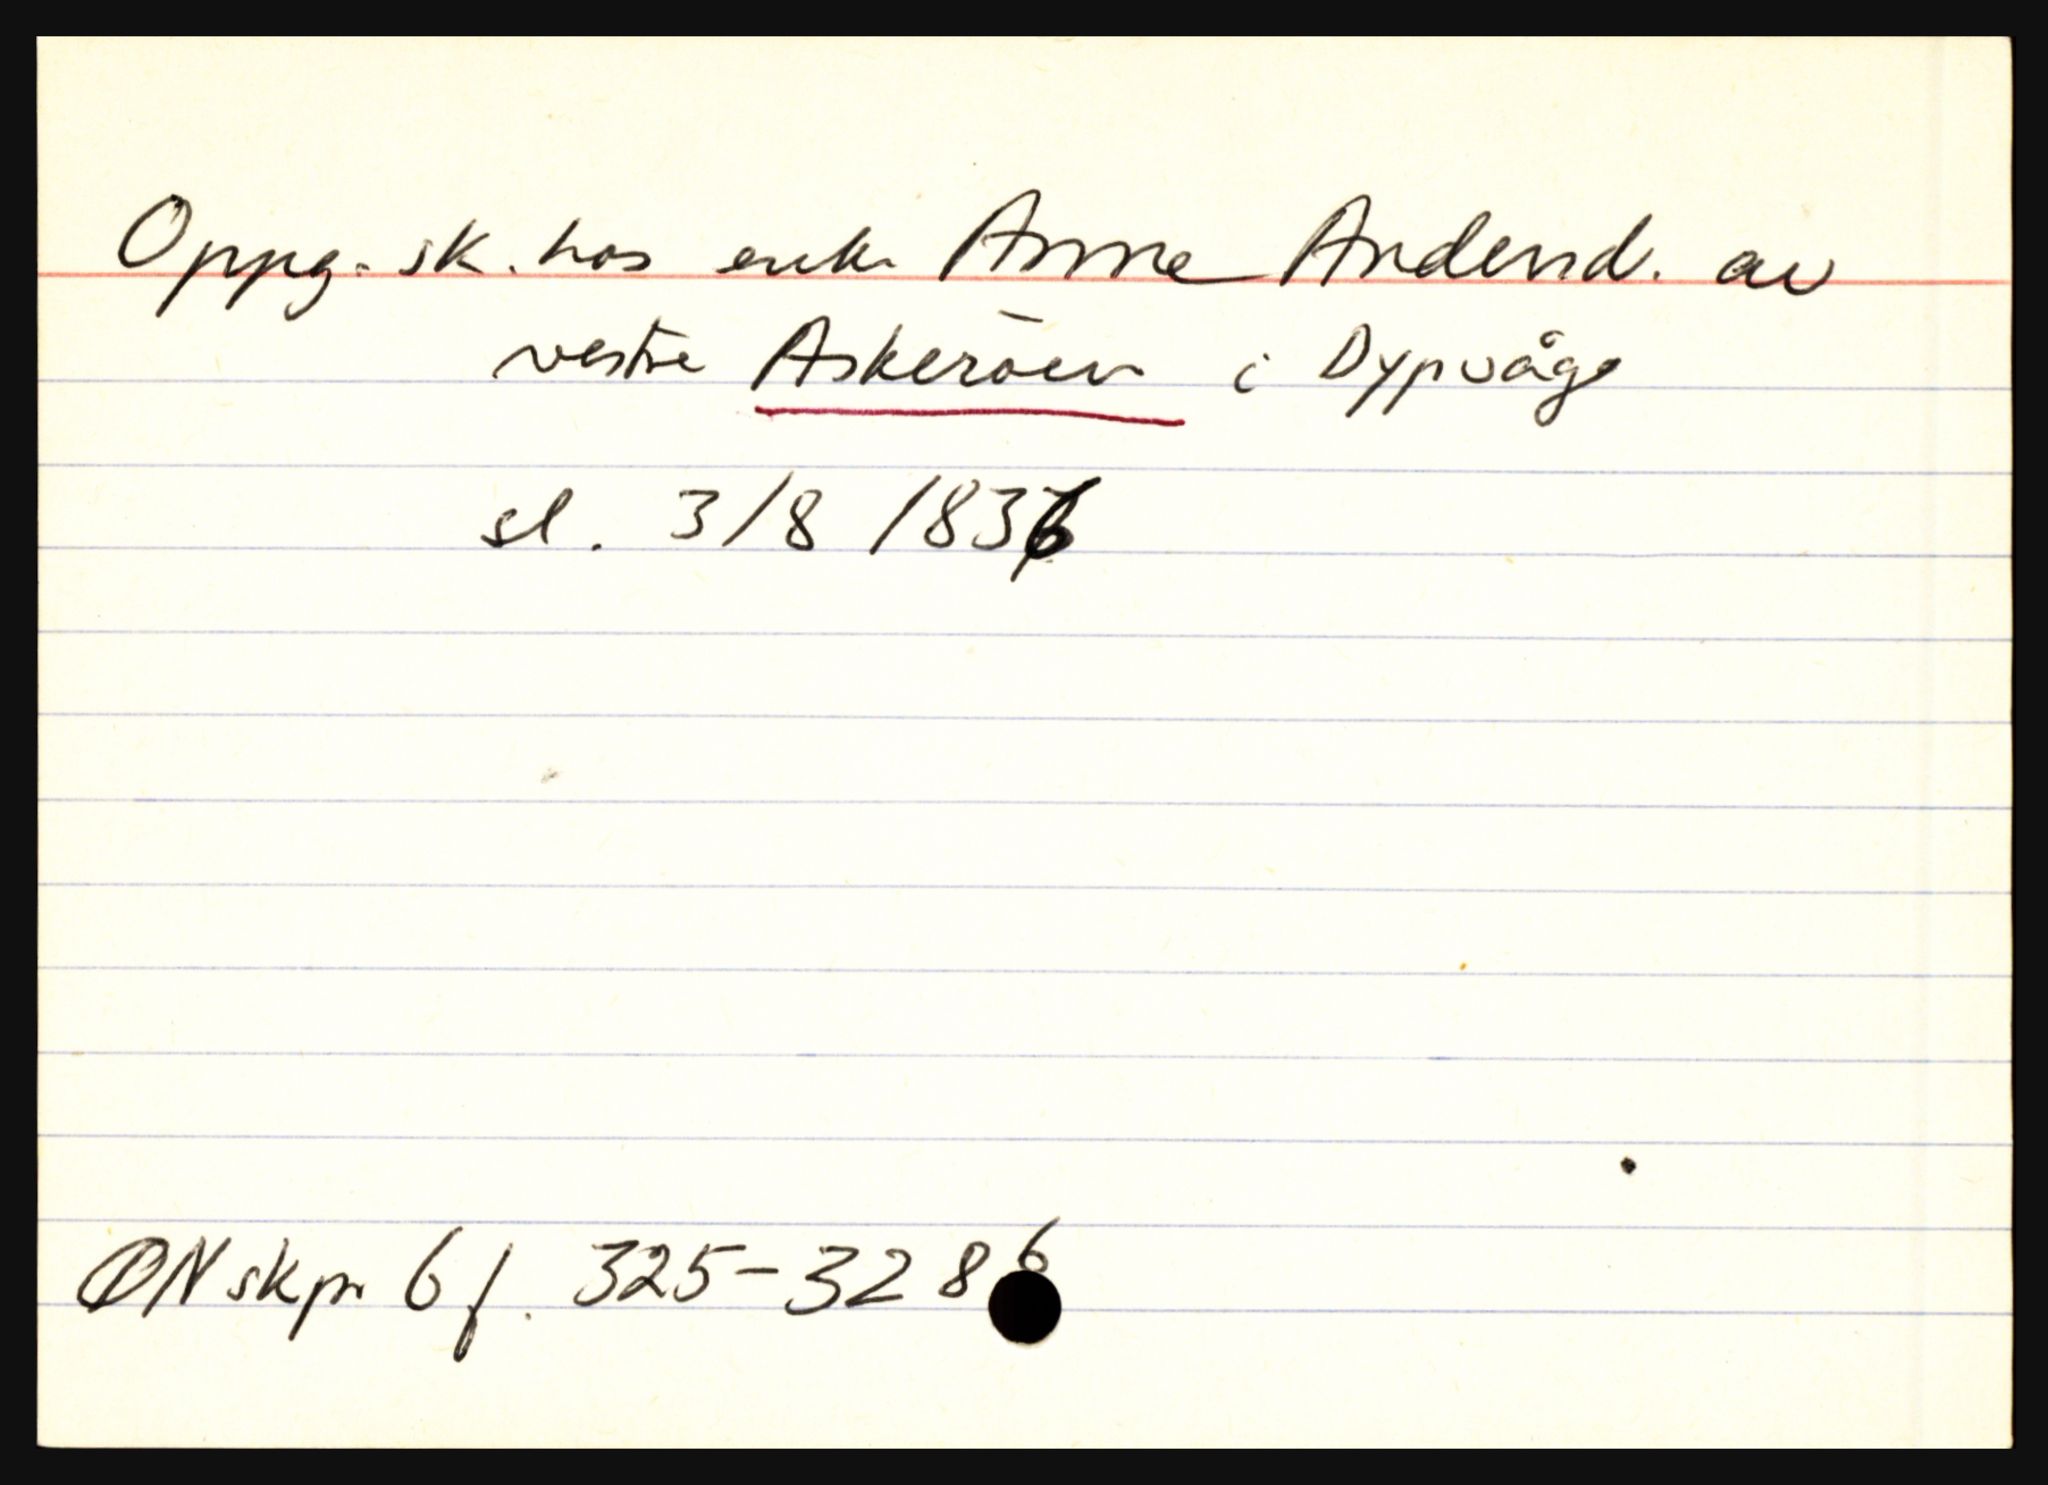 Oppg. sk. hos enke Anne Andersd. av
vestre Askerøen i Dypvåg
sl. 3/8 1836
ØN skpr 6 f. 325-328 b